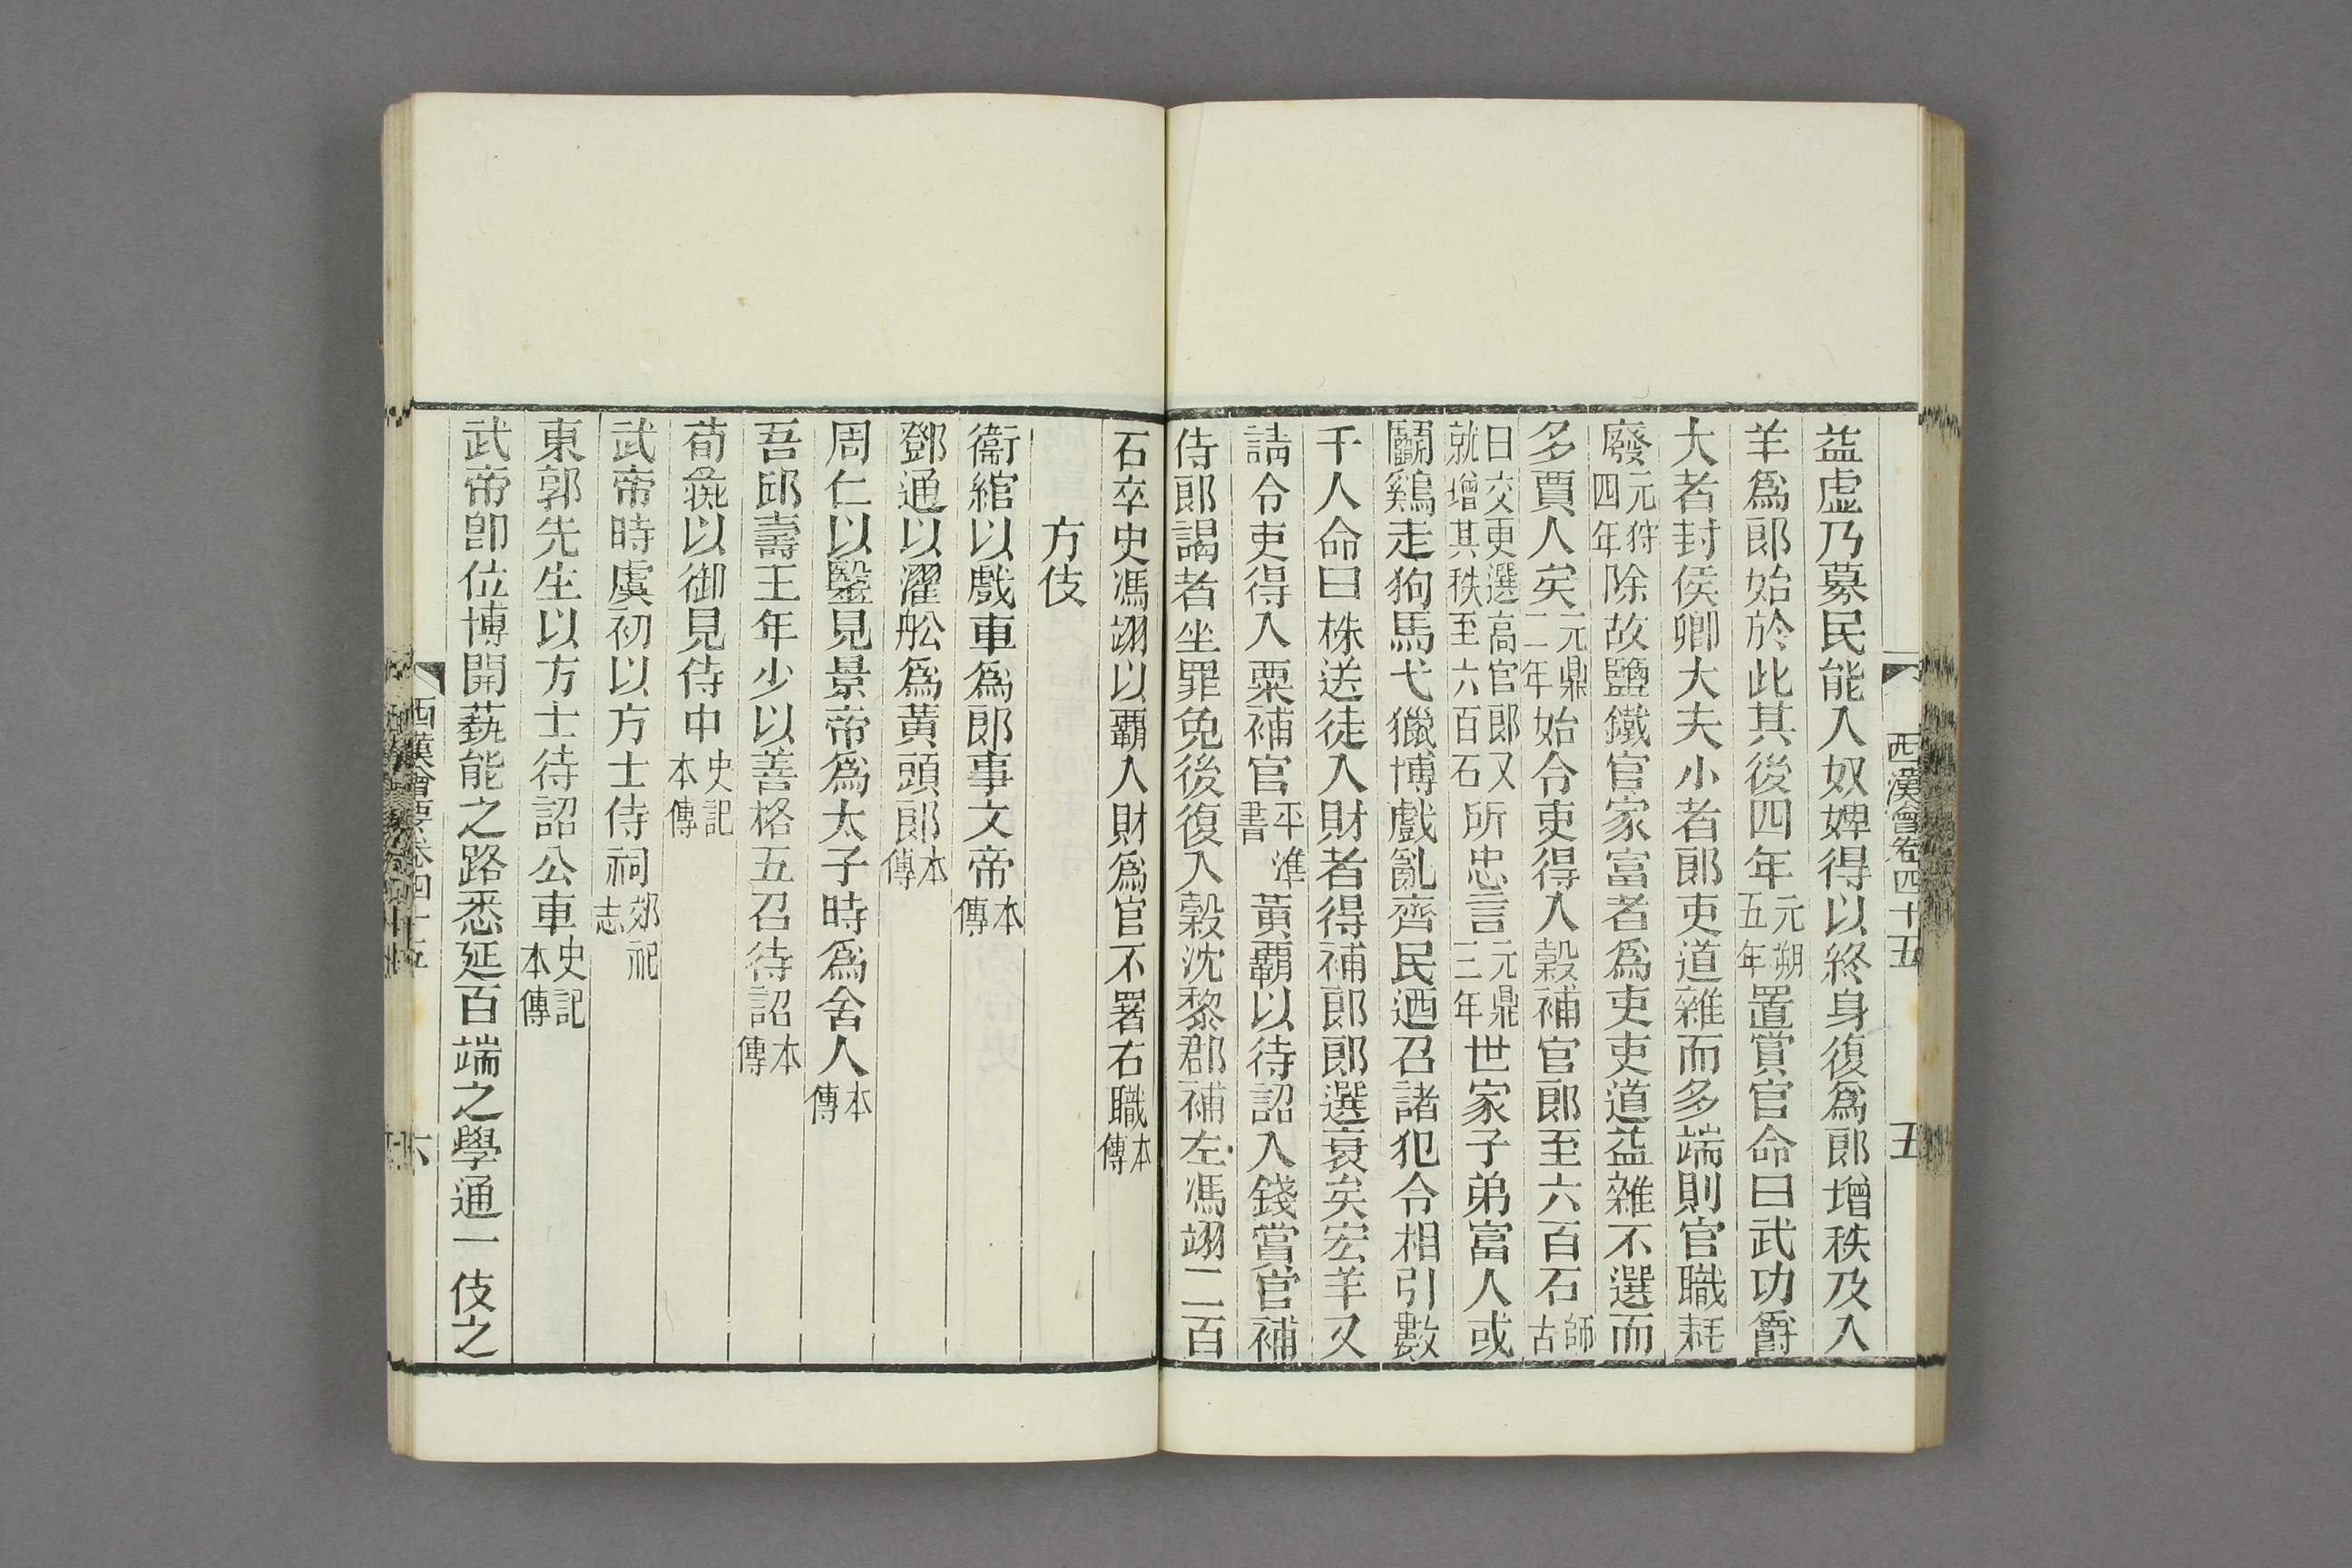 西漢會卷四十五 五
益虛乃募民能入奴婢得以終身復爲郎增秩及入
羊爲郎始於此其後四年元朔五年置賞官命曰武功爵
大者封侯卿大夫小者郎吏道雜而多端則官職耗
廢元狩四年除故鹽鐵官家富者爲吏吏道益雜不選而
多賈人矣元鼎二年始令吏得入穀補官郎至六百石師古
曰交更選高官郎又就增其秩至六百石所忠言元鼎三年世家子弟富人或
鬭鷄走狗馬弋獵博戲亂齊民迺召諸犯令相引數
千人命曰株送徒入財者得補郎郎選衰矣宏羊又
請令吏得入粟補官平準書黃霸以待詔入錢賞官補
侍郎謁者坐罪免後復入穀沈黎郡補左馮翊二百
石卒史馮翊以霸入財爲官不署右職本傳
方伎
衞綰以戲車爲郎事文帝本傳
鄧通以濯舩爲黃頭郎本傳
周仁以毉見景帝爲太子時爲舍人本傳
吾邱壽王年少以善格五召待詔本傳
荀彘以御見侍中史記本傳
武帝時虞初以方士侍祠郊祀志
東郭先生以方士待詔公車史記本傳
武帝卽位博開藝能之路悉延百端之學通一伎之
西漢會要卷四十五 六